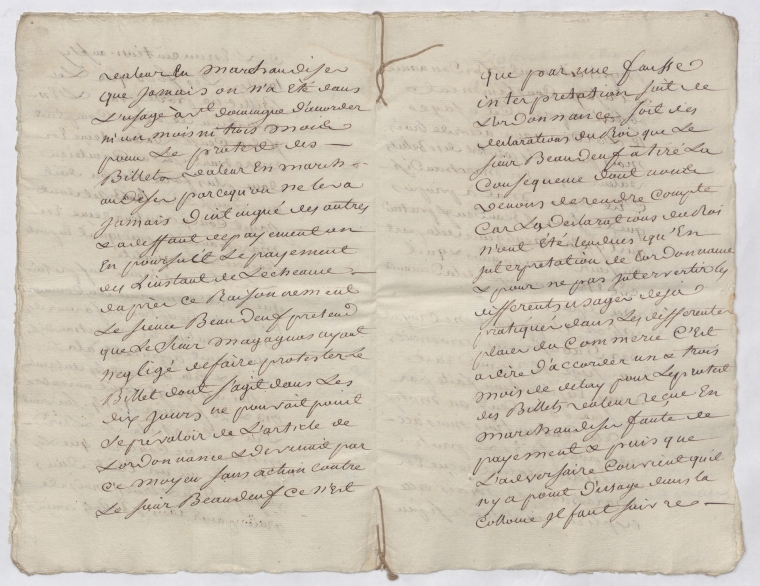 valeur En marchandises
que jamais on n'a Eté dans
L'usage à St domingue d'accorder
ni un mois ni trois mois
pour Le protest des
Billets valeur En march-
andises parcequ'on ne les a
jamais distingué des autres
& a deffaut de payement on
En poursuit Le payement
des L'instant de Lecheance
dapres ce Raisonnement
Le sieur Beaudeuf pretend
que Le sieur magagnos ayant
negligé de faire protester le
Billet dont s'agit dans Les
dix jours ne pouvait point
se prévaloir de L'article de
Lordonnance & devenait par
ce moyen sans action contre
Le sieur Beaudeuf Ce n'Est
que par une fausse
interpretation soit de
Lordonnance soit des
declarations du Roi que Le
sieur Beaudeuf à tiré La
Consequence dont nous
venons de rendre Compte
Car Les declarations du Roi
n'ont Eté rendues qu'En
interpretation de Lordonnance
& pour ne pas intervertir les
differents usages deja
pratiqués dans Les differentes
places du Commerce C'Est
a dire d'accorder un & trois
mois de delay pour Le protest
des Billets valeur reçue En
marchandises faute de
payement & puis que
L'adversaire Convient qu'il
n'y a point d'usage dans la
Colonie il faut suivre